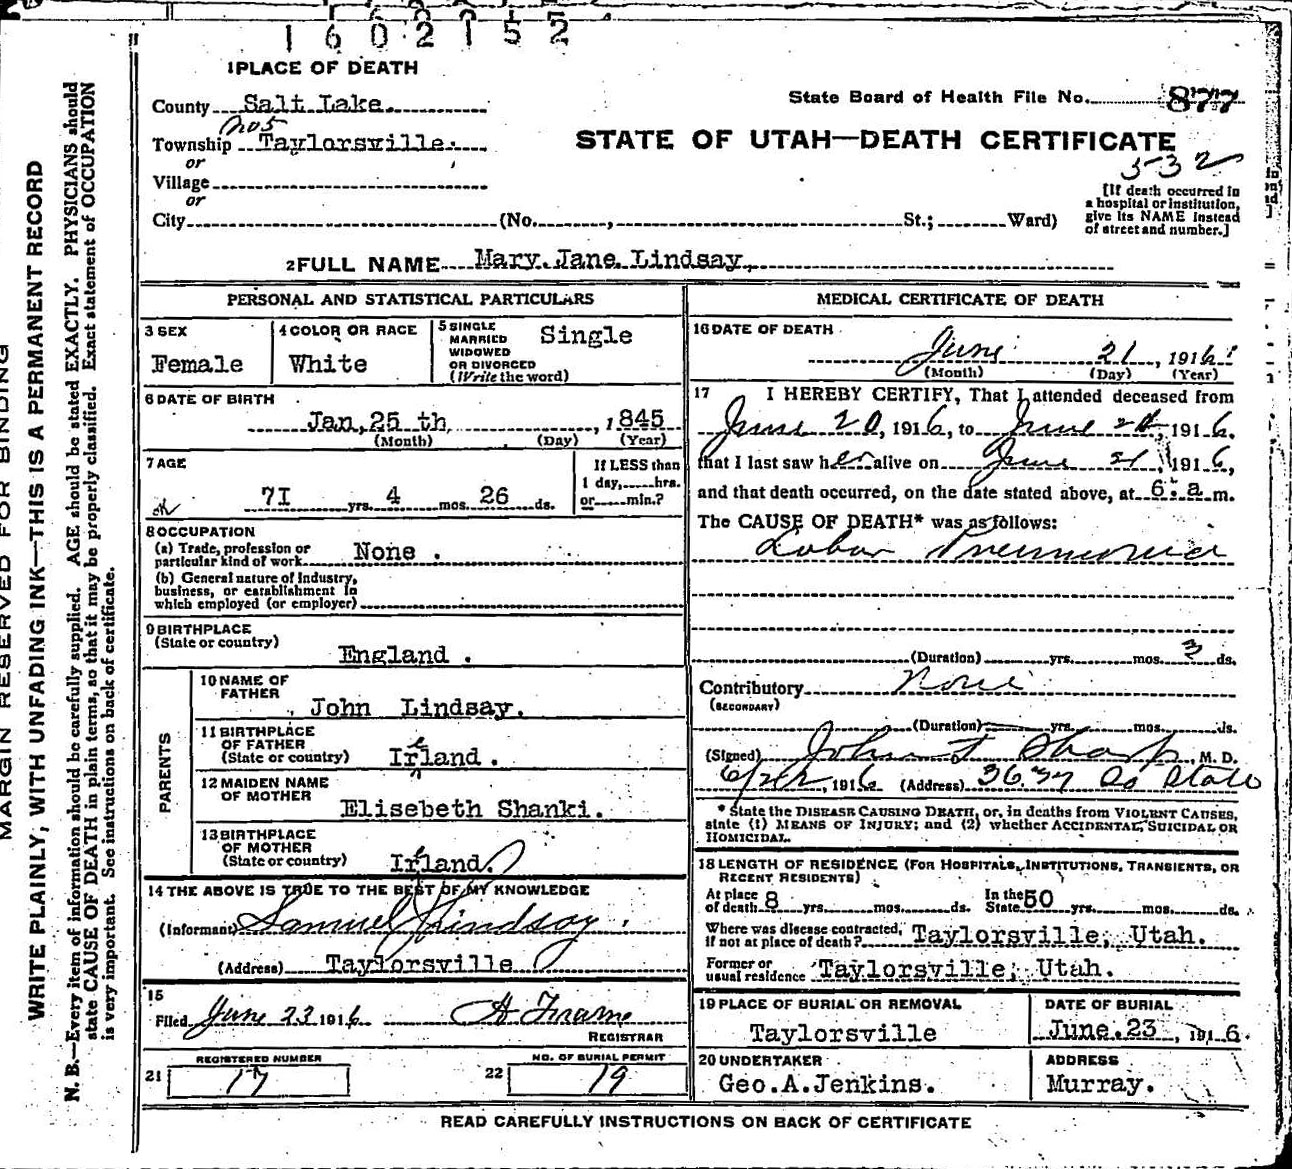 1602152
1 PLACE OF DEATH
County Salt Lake.
State Board of Health File No. 877
No 5
Township Taylorsville.
STATE OF UTAH—DEATH CERTIFICATE
532
or
Village
or
City (No. , St.; Ward)
[If death occurred in
a hospital or institution,
give its NAME instead
of street and number.]
2 FULL NAME Mary Jane Lindsay,
PERSONAL AND STATISTICAL PARTICULARS
3 SEX
Female
4 COLOR OR RACE
White
5 SINGLE
MARRIED
WIDOWED
OR DIVORCED
(Write the word)
Single
6 DATE OF BIRTH
Jan, 25 th , 1845
(Month) (Day) (Year)
7 AGE
7I yrs. 4 mos. 26 ds.
If LESS than
1 day, hrs.
or min.?
8 OCCUPATION
(a) Trade, profession or
particular kind of work None .
(b) General nature of Industry,
business, or establishment in
which employed (or employer)
9 BIRTHPLACE
(State or country)
England .
PARENTS
10 NAME OF
FATHER
John Lindsay.
11 BIRTHPLACE
OF FATHER
(State or country) Irland .
e
12 MAIDEN NAME
OF MOTHER
Elisebeth Shanki.
13 BIRTHPLACE
OF MOTHER
(State or country) Irland.
e
14 THE ABOVE IS TRUE TO THE BEST OF MY KNOWLEDGE
(Informant) Samuel Lindsay
(Address) Taylorsville
15
Filed June 23 1916
REGISTRAR
REGISTERED NUMBER
21 17
NO. OF BURIAL PERMIT
22 19
MEDICAL CERTIFICATE OF DEATH
16 DATE OF DEATH
June 21, 1916
(Month) (Day) (Year)
17 I HEREBY CERTIFY, That I attended deceased from
June 20, 1916, to June , 1916,
that I last saw her alive on June 21, 1916,
and that death occurred, on the date stated above, at 6. a m.
The CAUSE OF DEATH* was as follows:
Lobar Pneumonia
(Duration) yrs. mos. 3 ds.
Contributory None
(SECONDARY)
(Duration) yrs. mos. ds.
(Signed) John F Sharp M. D.
6/22, 1916 (Address) So State
* State the DISEASE CAUSING DEATH, or, in deaths from VIOLENT CAUSES,
state (1) MEANS OF INJURY; and (2) whether ACCIDENTAL, SUICIDAL OR
HOMICIDAL.
18 LENGTH OF RESIDENCE (FOR HOSPITALS, INSTITUTIONS, TRANSIENTS, OR
RECENT RESIDENTS)
At place
of death 8 yrs. mos. ds.
In the
State 50 yrs. mos. ds.
Where was disease contracted,
if not at place of death? Taylorsville, Utah.
Former or
usual residence Taylorsville, Utah.
19 PLACE OF BURIAL OR REMOVAL
Taylorsville
DATE OF BURIAL
June. 23 , 1916.
20 UNDERTAKER
Geo.A.Jenkins.
ADDRESS
Murray.
READ CAREFULLY INSTRUCTIONS ON BACK OF CERTIFICATE
MARGIN RESERVED FOR BINDING
WRITE PLAINLY, WITH UNFADING INK—THIS IS A PERMANENT RECORD
N. B.—Every item of information should be carefully supplied. AGE should be stated EXACTLY. PHYSICIANS should
state CAUSE OF DEATH in plain terms, so that it may be properly classified. Exact statement of OCCUPATION
is very important. See instructions on back of certificate.